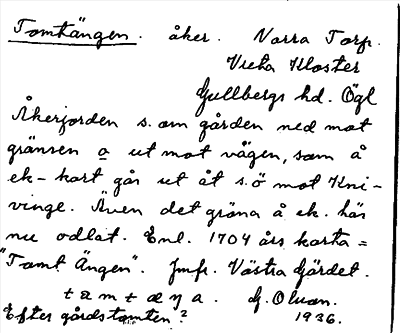 Tomtängen. åker. Norra Torp.
Vreta Kloster
Gullbergs hd. Ögl
Åkerjorden s. om gården ned mot
gränsen o ut mot vägen, som å
ek-kart går ut åt s.ö mot Kni-
vinge. Även det gröna å ek. här
nu odlat. Enl. 1704 års karta =
"Tomt Ängen". Jmfr. Västra Gärdet.
tamtæŋa. G. Olson.
Efter gårdstomten? 1936.